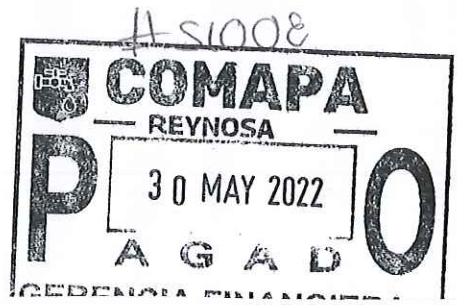 # S1008
COMAPA
REYNOSA
30 MAY 2022
PAGADO
GERENCIA FINANCIERA